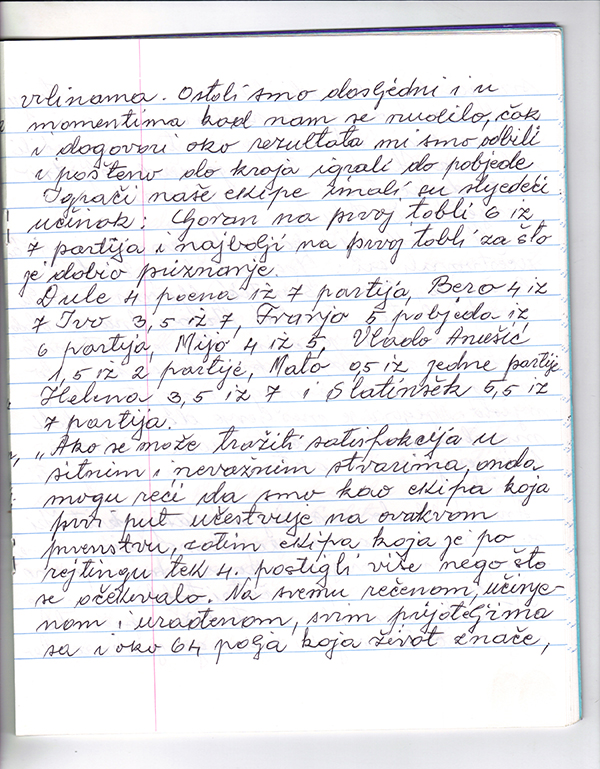 vrlinama. Ostali smo dosljedni i u
momentima kad nam se nudilo, čak
i dogovori oko rezultata mi smo odbili
i pošteno do kraja igrali do pobjede
Igrači naše ekipe imali su sljedeći
učinak: Goran na prvoj tabli 6 iz
7 partija i najbolji na prvoj tabli za što
je dobio priznanje.
Dule 4 poena iz 7 partija, Bero 4 iz
7 Ivo 3,5 iz 7, Franjo 5 pobjeda iz
6 partija, Mijo 4 iz 5, Vlado Anušić
1,5 iz 2 partije, Mato 0,5 iz jedne partije
Helena 3,5 iz 7 i Slatinšek 5,5 iz
7 partija.
„Ako se može tražiti satisfakcija u
sitnim i nevažnim stvarima, onda
mogu reći da smo kao ekipa koja
prvi put učestvuje na ovakvom
prvenstvu, zatim ekipa koja je po
rejtingu tek 4. postigli više nego što
se očekivalo. Na svemu rečenom, učinje-
nom i urađenom, svim prijateljima
sa i oko 64 polja koja život znače,